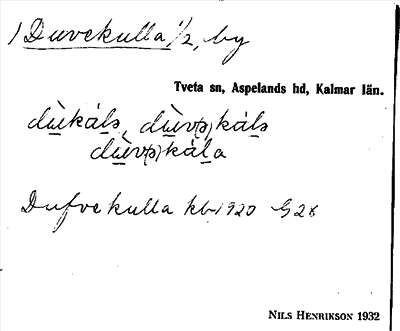 1 Duvekulla 1/2, by
Tveta sn, Aspelands hd, Kalmar län.
dùkáls, dùv(ə)káls
dùv(ə)kála
Dufvekulla kb 1920
NILS HENRIKSON 1932